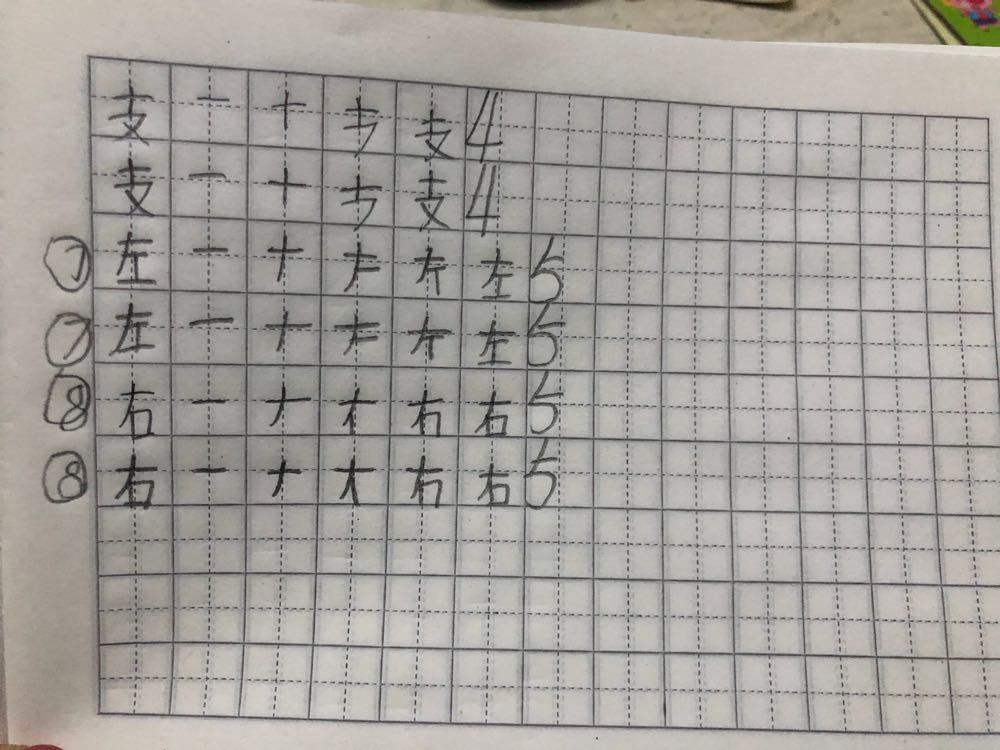 支 一 十 ㄘ 支 4
支 一 十 ㄘ 支 4
⑦ 左 一 ナ 𠂇 左 5
⑦ 左 一 ナ 𠂇 左 5
⑧ 右 一 ナ 右 右 5
⑧ 右 一 ナ 右 右 5